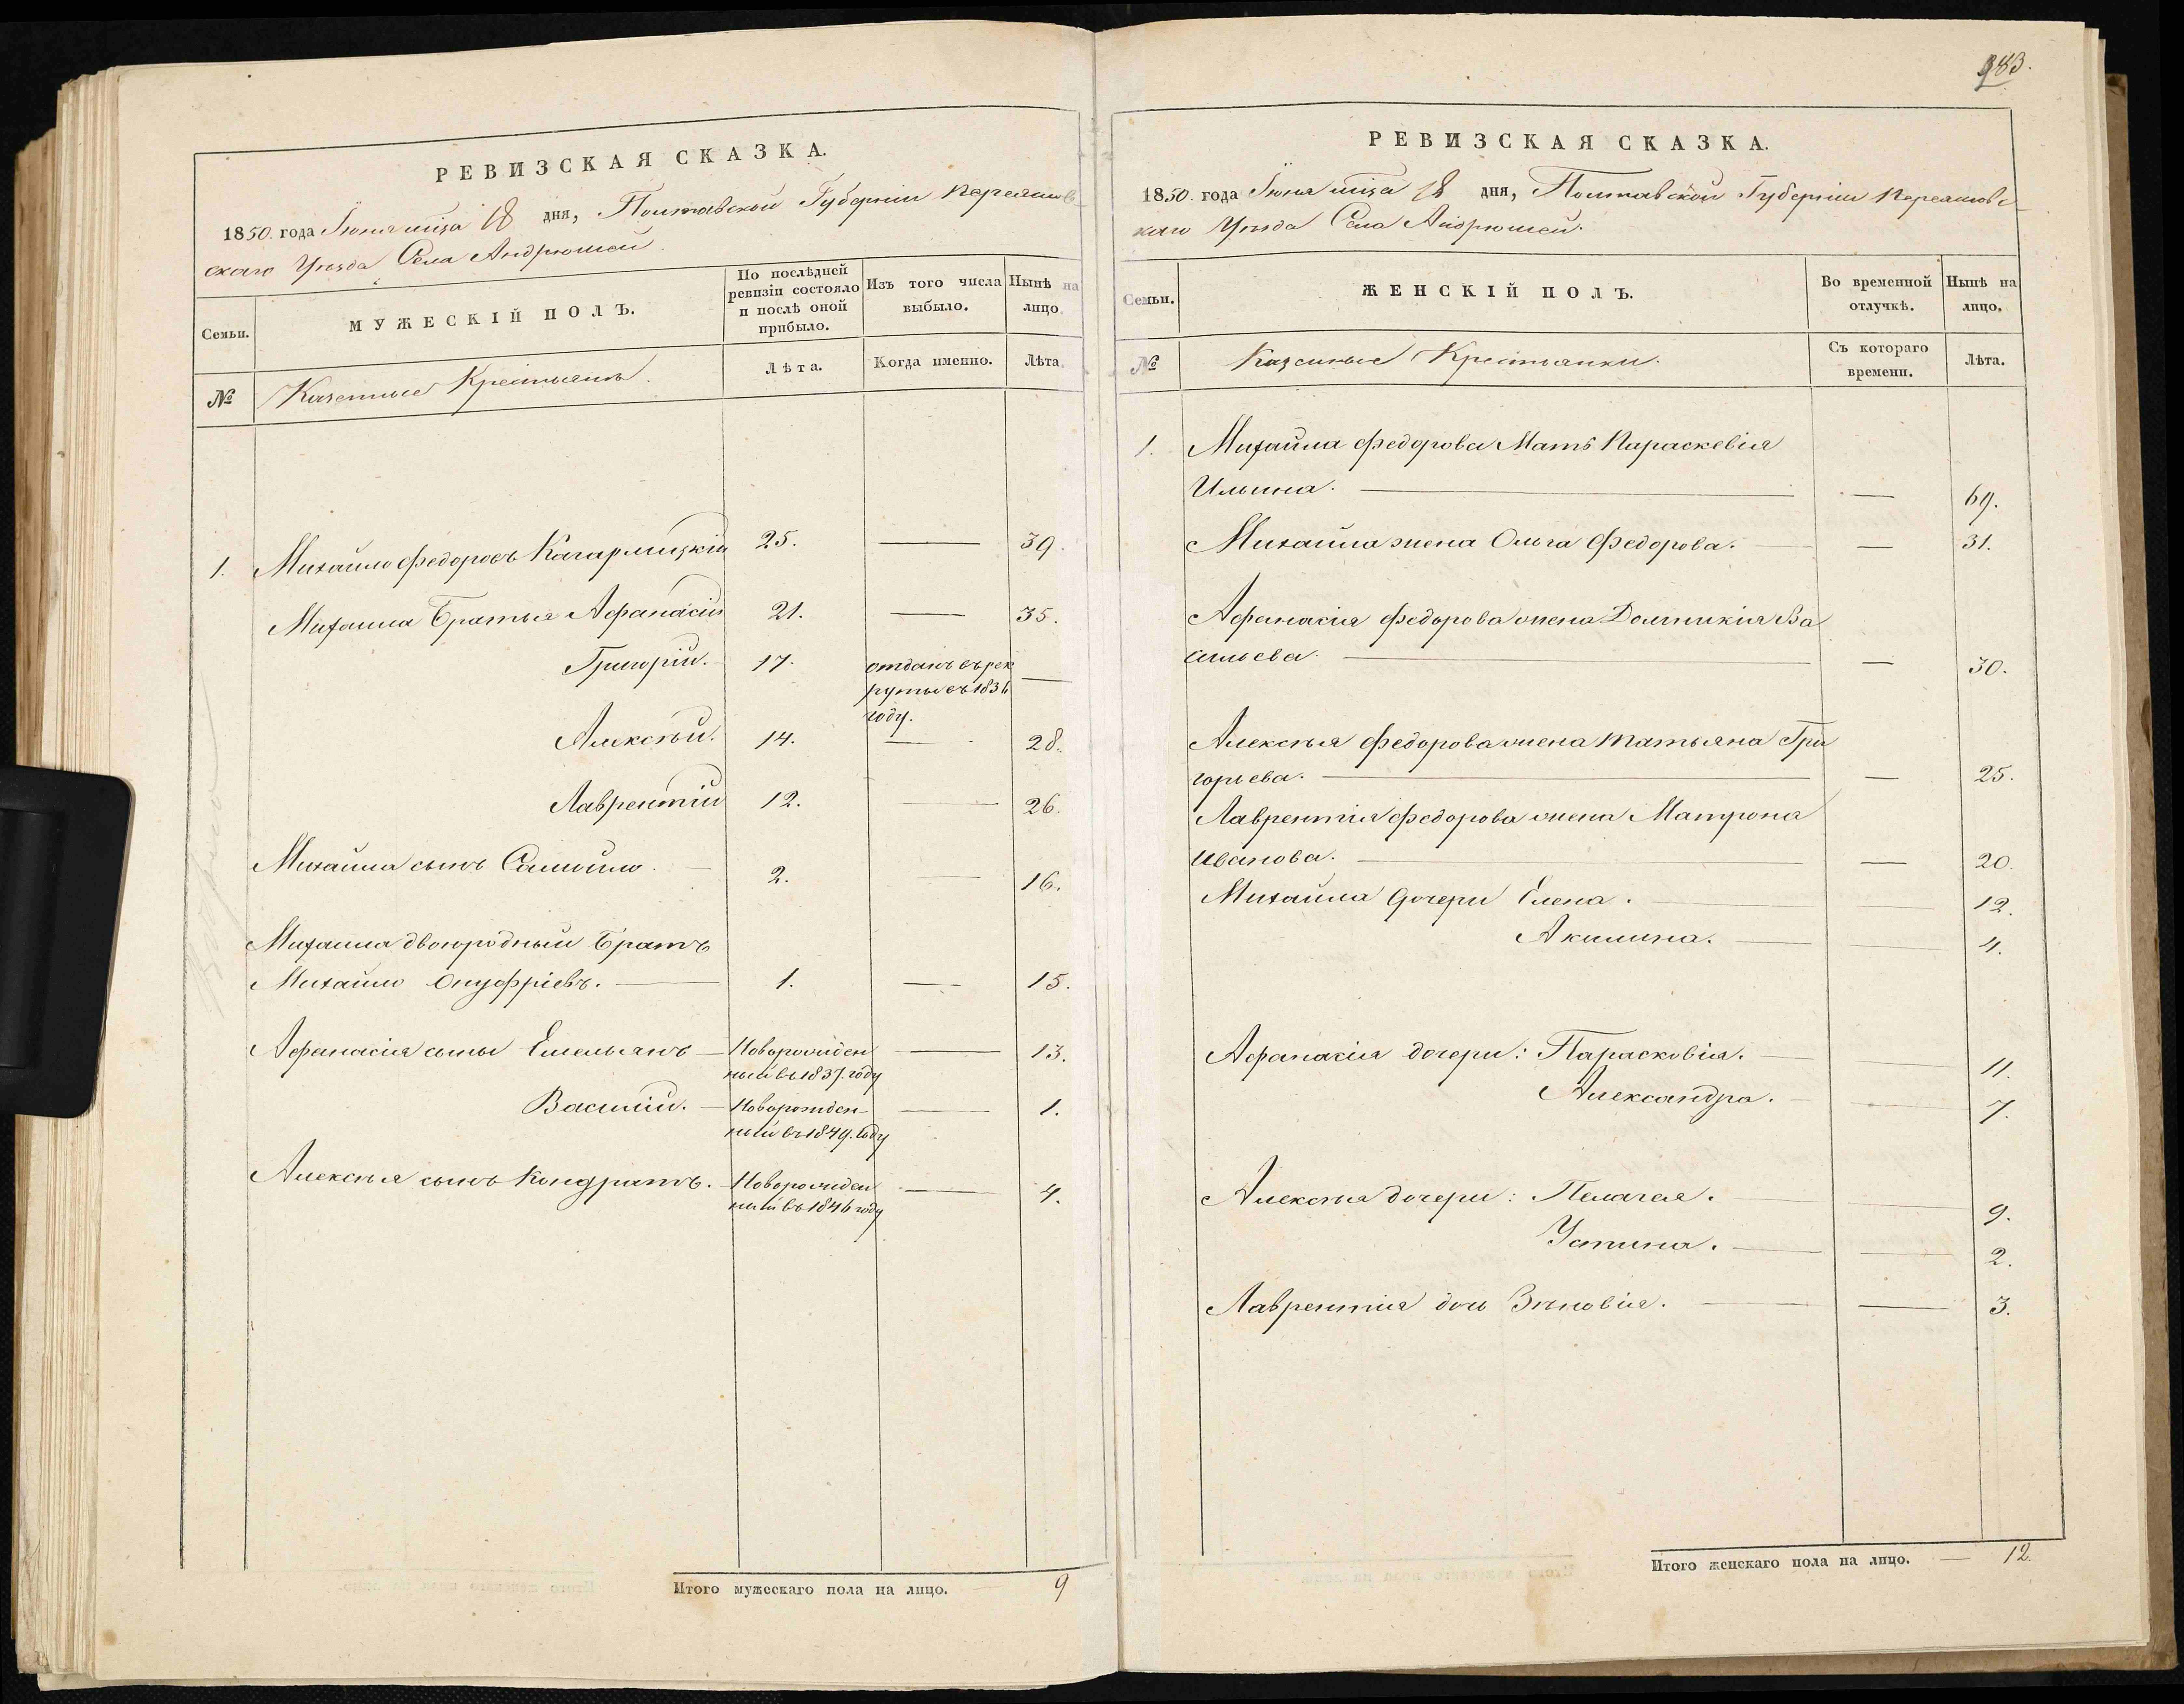 983.
РЕВИЗСКАЯ СКАЗКА.
1850. года Іюня мѣца 18 дня, Полтавской Губерніи Переяслов-
скаго Уѣзда Села Андрюшей.
Семьи.
МУЖЕСКІЙ ПОЛЪ.
По послѣдней ревизіи состояло и послѣ оной прибыло.
Изъ того числа выбыло.
Нынѣ на лицо.
№
Казенные Крестьяне.
Лѣта.
Когда именно.
Лѣта.
1. Михайло Федоровъ Кагарлицкій 25. — 39.
Михаила Братья Афанасій 21. — 35.
Григорій. — 17. отданъ въ рек
руты въ 1836 —
году.
Алексѣй. 14. — 28.
Лаврентій 12. — 26.
Михайла сынъ Самойло. — 2. — 16.
Михаила двоюродный Братъ
Михайло Онуфріевъ. — 1. — 15.
Афанасія сыны Емельянъ — Новорожден — 13.
ный въ 1837. году
Василій. — Новорожден- — 1.
ный въ 1849. году
Алексѣя сынъ Кондратъ. — Новорожден — 4.
ный въ 1846 году
Итого мужескаго пола на лицо. — 9
РЕВИЗСКАЯ СКАЗКА.
1850. года Іюня мѣца 18 дня, Полтавской Губерніи Переяславс-
каго Уѣзда Села Андрюшей.
Семьи.
ЖЕНСКІЙ ПОЛЪ.
Во временной отлучкѣ.
Нынѣ на лицо.
№
Казенные Крестьянки.
Съ котораго времени.
Лѣта.
1. Михайла Федорова Мать Параскевія
Ильина. — — 69.
Михайла жена Ольга Федорова. — — 31.
Афанасія Федорова жена Домникія Ва
сильева. — — 30.
Алексѣя Федорова жена Татьяна Гри
горьева. — — 25.
Лаврентія Федорова жена Матрона
Иванова. — — 20.
Михайла дочери Елена. — — 12.
Акилина. — — 4.
Афанасія дочери: Парасковія. — — 11.
Александра. — — 7.
Алексѣя дочери: Пелагея. — — 9.
Устина. — — 2.
Лаврентія дочь Зѣновія. — — 3.
Итого женскаго пола на лицо. — 12.